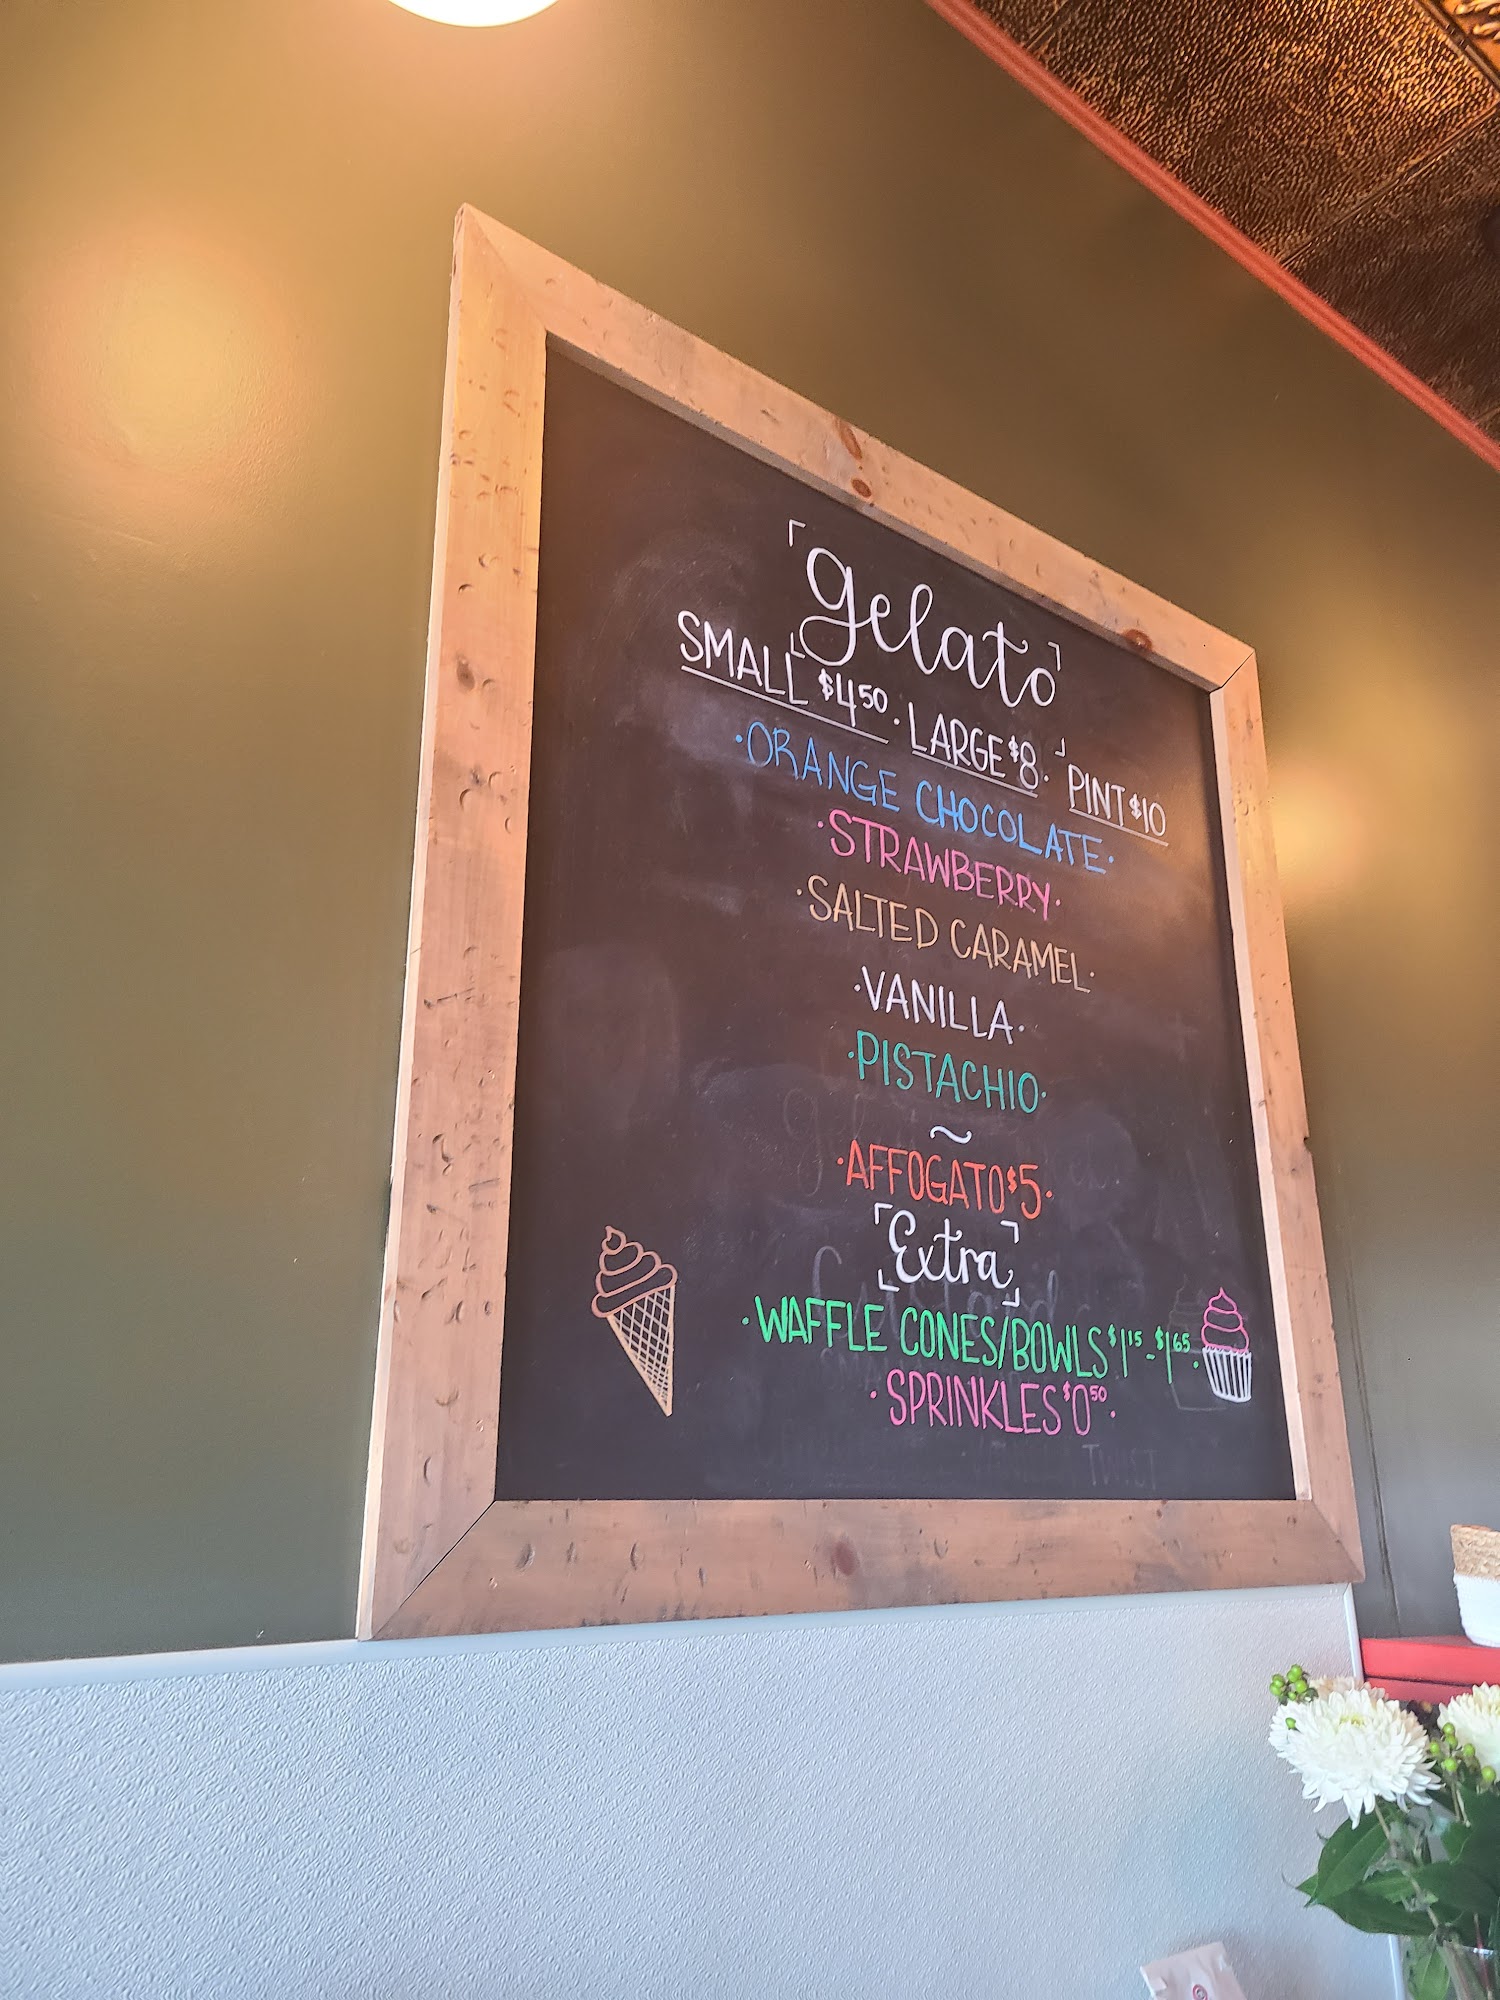 gelato
SMALL $4.50 · LARGE $8 · PINT $10
·ORANGE CHOCOLATE·
·STRAWBERRY·
·SALTED CARAMEL·
·VANILLA·
·PISTACHIO·
~
·AFFOGATO $5·
Extra
·WAFFLE CONES/BOWLS $1.15-$1.65·
·SPRINKLES $0.50·
TWIST